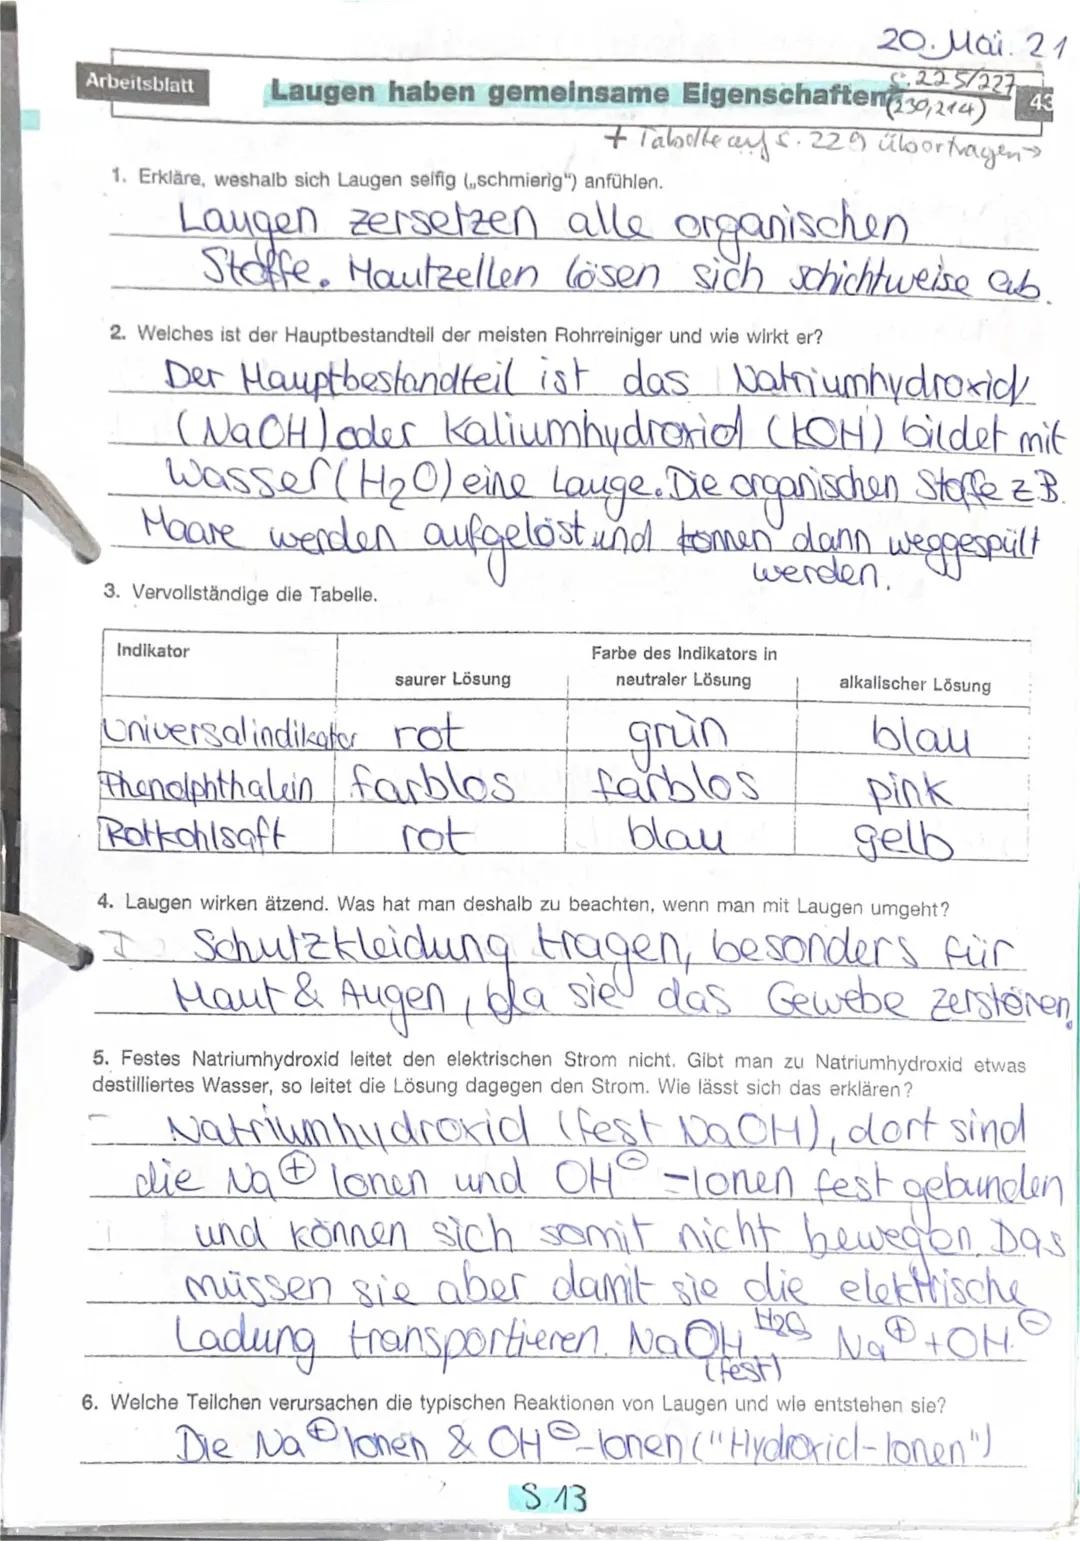 20. Mai. 21
Arbeitsblatt
Laugen haben gemeinsame Eigenschaften
S. 225/227
(230,214)
43
+ Tabelle auf S. 229 übertragen →
1. Erkläre, weshalb sich Laugen seifig („schmierig") anfühlen.
Laugen zersetzen alle organischen
Stoffe. Hautzellen lösen sich schichtweise ab.
2. Welches ist der Hauptbestandteil der meisten Rohrreiniger und wie wirkt er?
Der Hauptbestandteil ist das Natriumhydroxid
(NaOH) oder Kaliumhydroxid (KOH) bildet mit
Wasser (H2O) eine Lauge. Die organischen Stoffe z.B.
Haare werden aufgelöst und können dann weggespült
werden.
3. Vervollständige die Tabelle.
Indikator
Farbe des Indikators in
saurer Lösung neutraler Lösung alkalischer Lösung
Universalindikator rot grün blau
Phenolphthalein farblos farblos pink
Rotkohlsaft rot blau gelb
4. Laugen wirken ätzend. Was hat man deshalb zu beachten, wenn man mit Laugen umgeht?
Schutzkleidung tragen, besonders für
Haut & Augen, da sie das Gewebe zerstören.
5. Festes Natriumhydroxid leitet den elektrischen Strom nicht. Gibt man zu Natriumhydroxid etwas
destilliertes Wasser, so leitet die Lösung dagegen den Strom. Wie lässt sich das erklären?
Natriumhydroxid (fest NaOH), dort sind
die Na⊕ Ionen und OH⊖-Ionen fest gebunden
und können sich somit nicht bewegen. Das
müssen sie aber damit sie die elektrische
Ladung transportieren. NaOH (fest) H2O Na⊕ + OH⊖
6. Welche Teilchen verursachen die typischen Reaktionen von Laugen und wie entstehen sie?
Die Na⊕ Ionen & OH⊖-Ionen ("Hydroxid-Ionen")
S. 13